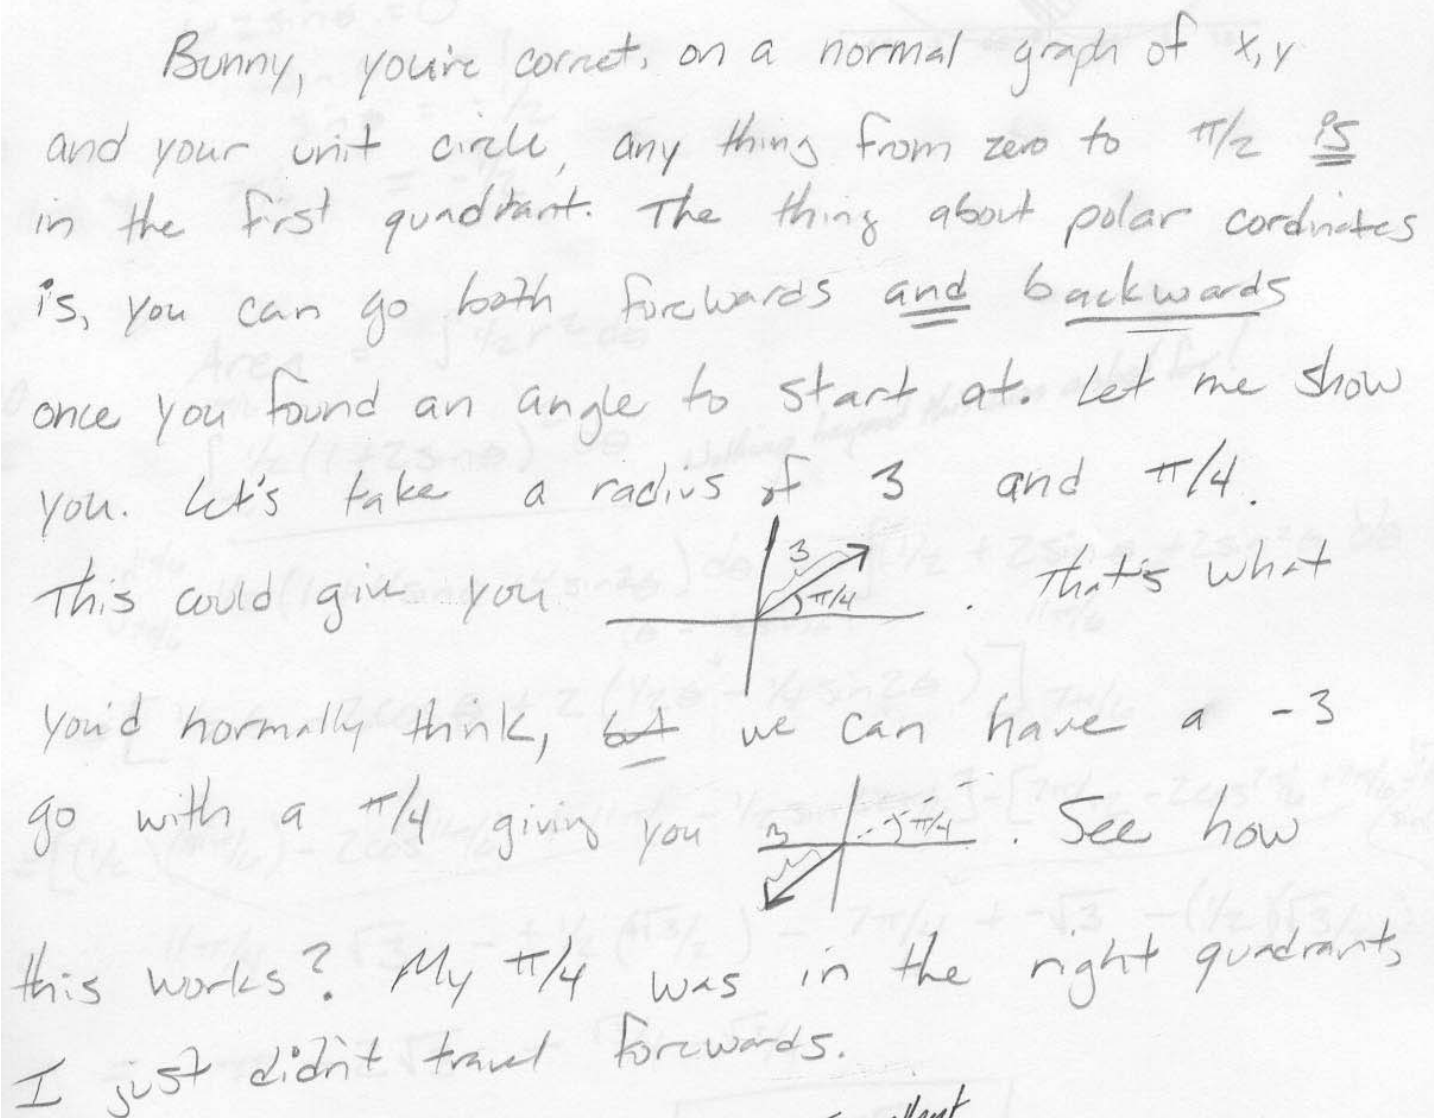 Bunny, you're correct, on a normal graph of x,y
and your unit circle, any thing from zero to π/2 is
in the first quadrant. The thing about polar cordinates
is, you can go both forewards and backwards
once you found an angle to start at. Let me show
you. Let's take a radius of 3 and π/4.
This could give you 3 π/4 . That's what
you'd normally think, but we can have a -3
go with a π/4 giving you 3 π/4 . See how
this works? My π/4 was in the right quadrant,
I just didn't travel forewards.